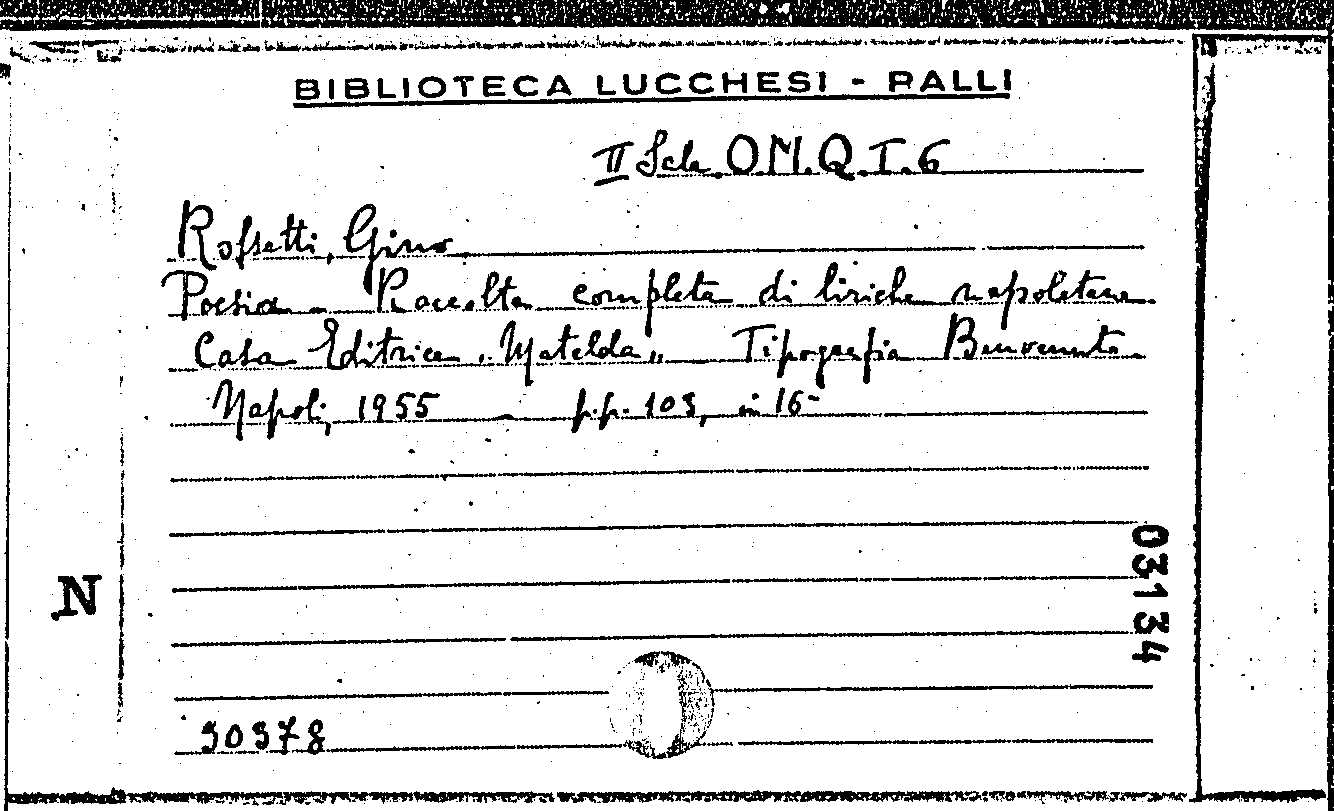 BIBLIOTECA LUCCHESI - PALLI
II Scla. O.M.Q.I.6
Rossetti, Gino
Poesia - Raccolta completa di liriche napoletane
Casa Editrice "Matelda" - Tipografia Benvenuto
Napoli, 1955 - p.p. 103, in 16-
03134
N
30378